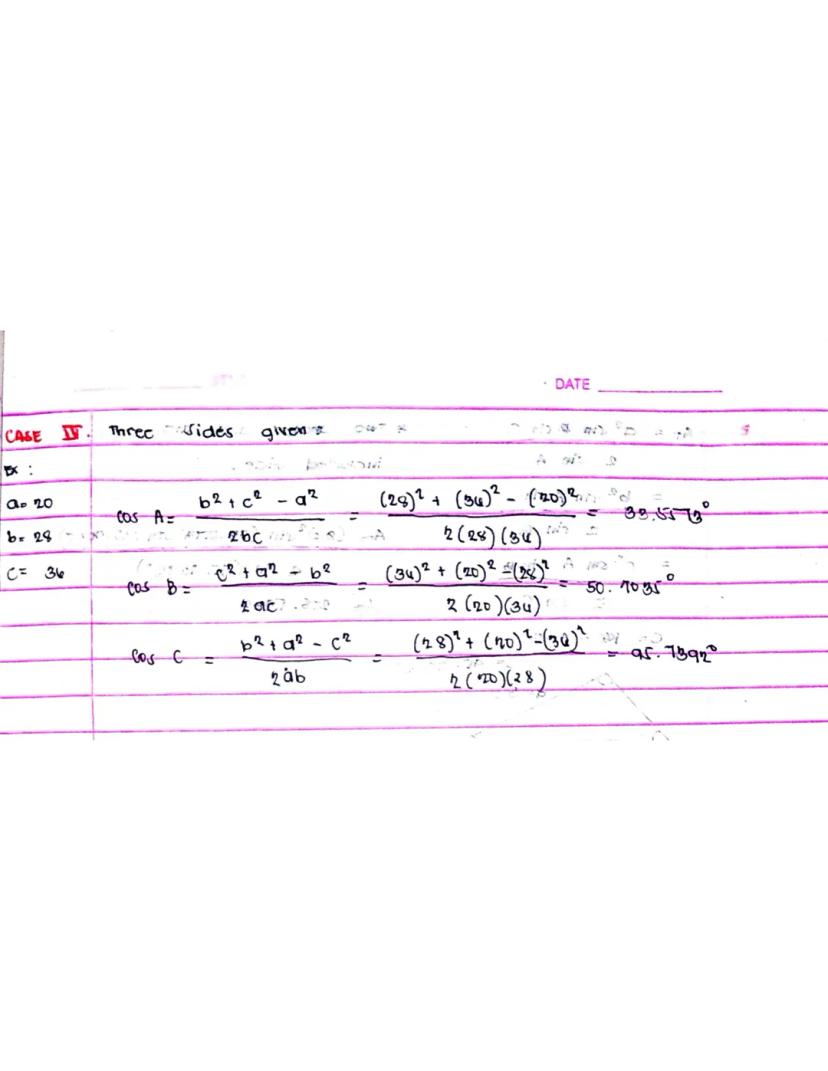 DATE
CASE IV. Three sides given
Ex :
a= 20 cos A= b² + c² - a² / 2bc = (28)² + (36)² - (20)² / 2(28)(36) = 33.5573°
b= 28
c= 36 cos B= c² + a² - b² / 2ac = (36)² + (20)² - (28)² / 2(20)(36) = 50.7035°
Cos C = b² + a² - c² / 2ab = (28)² + (20)² - (36)² / 2(20)(28) = 95.7392°